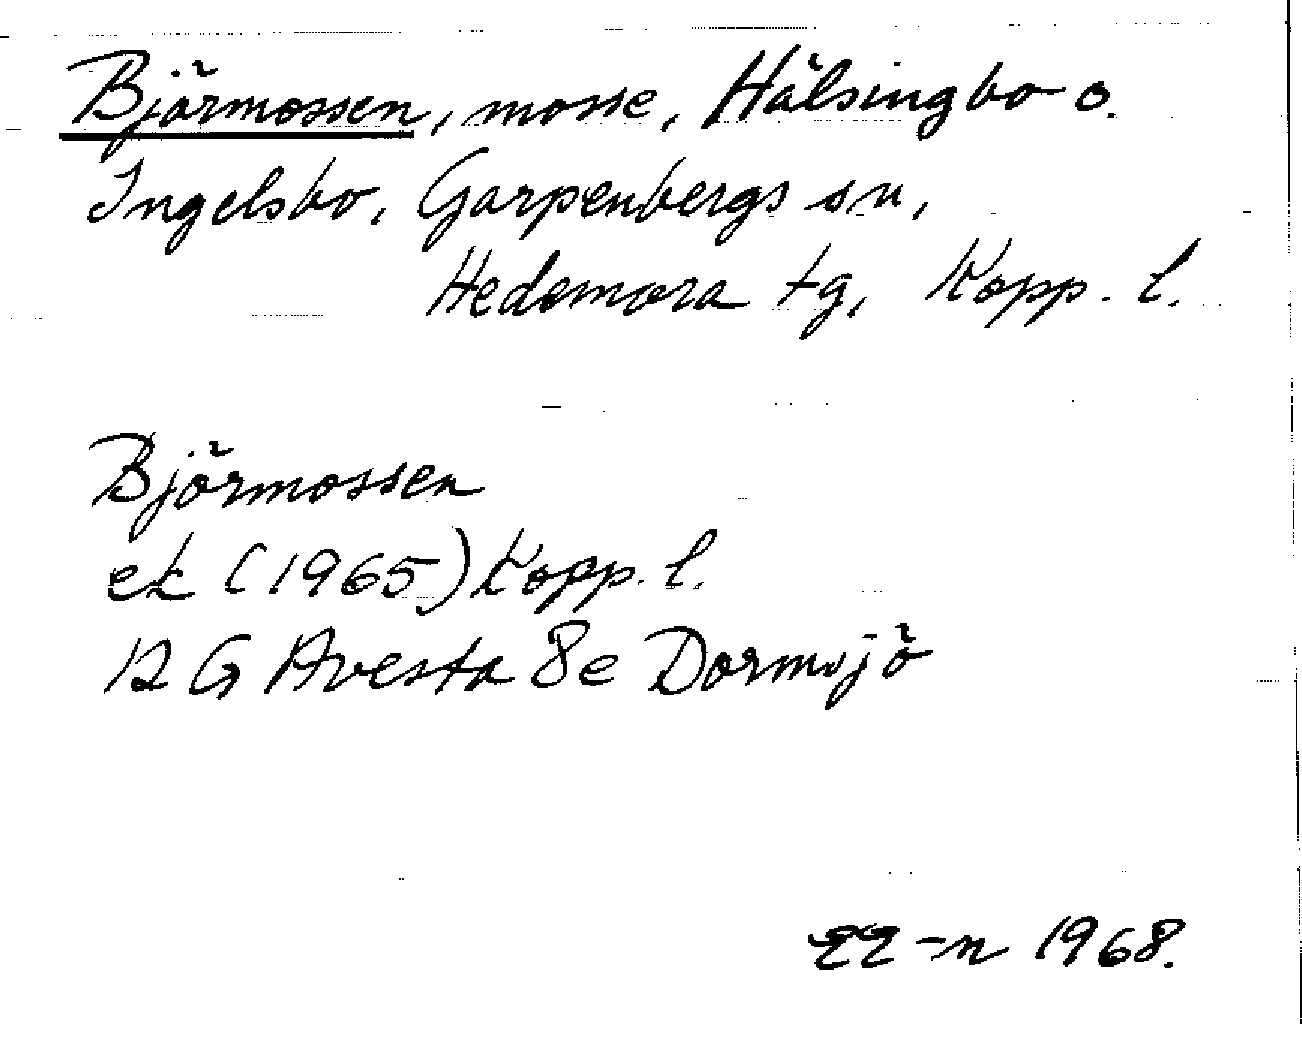 Björmossen, mosse, Hälsingbo o.
Ingelsbo, Garpenbergs sn,
Hedemora tg, Kopp. l.
Björmossen
ek (1965) Kopp. l.
12 G Avesta 8e Dormsjö
EE-n 1968.